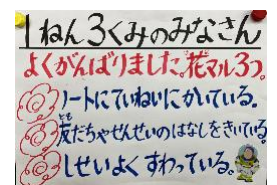 1ねん3くみのみなさん
よくがんばりました。花マル3つ。
ノートにていねいにかいている。
友だちやせんせいのはなしをきいている。
とも
しせいよくすわっている。